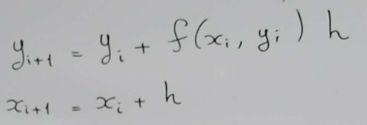 y_{i+1} = y_i + f(x_i, y_i) h
x_{i+1} = x_i + h